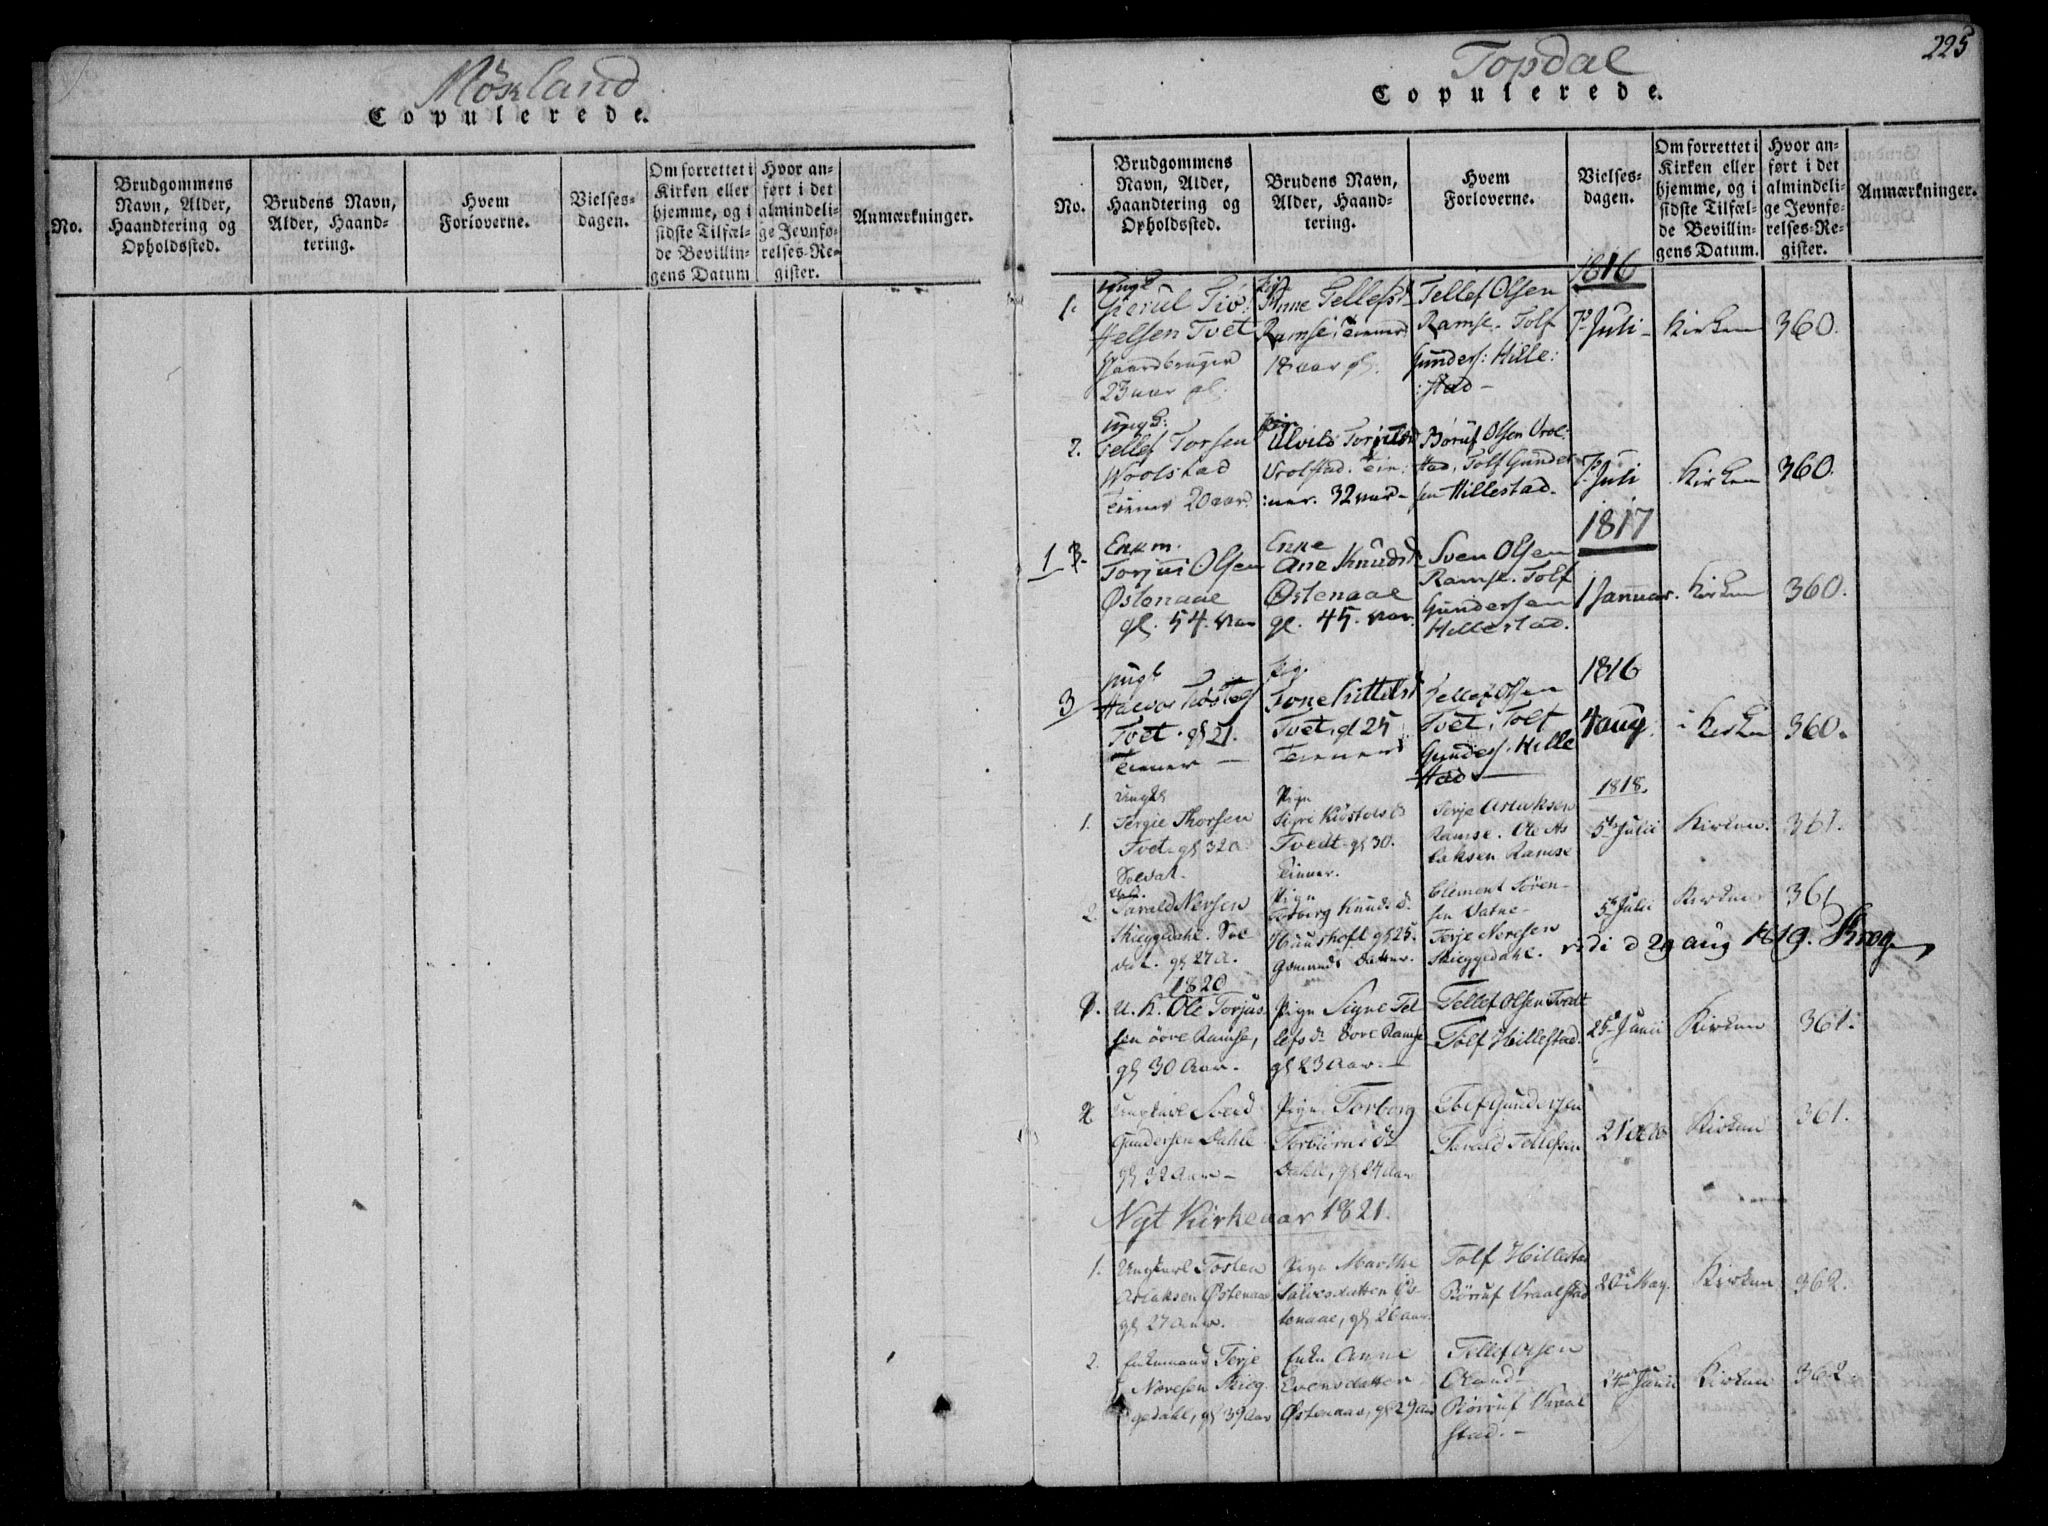 Möskland
Copulerede.
No.
Brudgommens
Navn, Alder,
Haandtering og
Opholdssted.
Brudens Navn,
Alder, Haand-
tering.
Hvem
Forloverne.
Vielses-
dagen.
Om forrettet i
Kirken eller
hjemme, og i
sidste Tilfæl-
de Bevillin-
gens Datum
Hvor an-
ført i det
almindeli-
ge Jevnfø-
relses-Re-
gister.
Anmærkninger.
225
Topdal
Copulerede.
No.
Brudgommens
Navn, Alder,
Haandtering og
Opholdssted.
Brudens Navn,
Alder, Haand-
tering.
Hvem
Forloverne.
Vielses-
dagen.
Om forrettet i
Kirken eller
hjemme, og i
sidste Tilfæl-
de Bevillin-
gens Datum.
Hvor an-
ført i det
almindeli-
ge Jevnfø-
relses-Re-
gister.
Anmærkninger.
1816
1.
ungk
helsen Tvet
Gaardbruger
23 aar gl.
pig.
Anne Tellefsd
Ramse, Tiener
18 aar gl.
Tellef Olsen
Ramse. Tolf
Gunders: Hille:
:stad-
7 Juli-
Kirken
360.
2.
ungk:
Tellef Torsen
Wrolstad
Tiener 20 aar.
pig.
Ulvild Torjusd
Vrolstad. Tie:
:ner. 32 aar-
Børuf Olsen Vrol:
stad, Tolf Gunder
sen Hillestad.
7 Juli
Kirken
360.
1817
1 3.
Enkm.
Torjus Olsen
Østenaae
gl. 54. aar
Enke
Ane Knudsd
Østenaae
gl. 45. aar.
Sven Olsen
Ramse. Tolf
Gundersen
Hillestad.
1 Januar.
Kirken
360.
1816
3
ungk
Halvor Tostens
Tvet. gl 21.
Tiener -
pig.
Tone Kittelsd
Tvet. gl 25
Tiener
Tellef Olsen
Tvet, Tolf
Gunders. Hille
stad -
4 aug.
i Kirken
360.
1818.
1.
Ungk
Tergie Thorsen
Tvet. gl 32 a.
Soldat.
Pige
Sigri
Tvedt gl 30.
Tiener.
Terje Aslaksen
Ramse. Ole As
laksen Ramse
5 Julii
Kirken.
361.
2.
Tarald Nersen
Skieggedahl. Sol
dat. gl 27 a.
Pige
Torberg Knudsd.
gl 25.
Gamands Datter.
Clement Sören-
sen Vatne-
Terje Nersen
Skieggedahl.
5 Julii
Kirken
361
vidi d 29 aug 1819. Krog
1820
1.
U. K. Ole Torjus
sen övre Ramse,
gl 30 Aar.
Pige Signe Tel
lefs d. övre Ramse
gl 23 Aar. -
Tellef Olsen Tvedt
Tolf Hillestad.
25 Junii
Kirken
361.
2
Ungkarl Svend
Gundersen Dahle
gl 32 Aar -
Pige Torborg
Torbiörnsd.
Dahle, gl 24 Aar
Tolf Gundersen
Tarald Tellefsen
21
Kirken
361.
Nyt Kirkeaar 1821.
1.
Ungkarl Tosten
Aslaksen Østenaae,
gl 27 Aar.
Pige Marthe
Salvesdatter Øs-
tenaae, gl 26 aar.
Tolf Hillestad
Börruf Vraalstad
20 May.
Kirken
362.
2.
Enkemand Terje
Nersen Skieg-
gedahl, gl 39 Aar
Enke Anne
Evensdatter
Østenaae, gl 29 Aar
Tellef Olsen
Börruf Vraal
stad. -
24 Junii
Kirken
362.